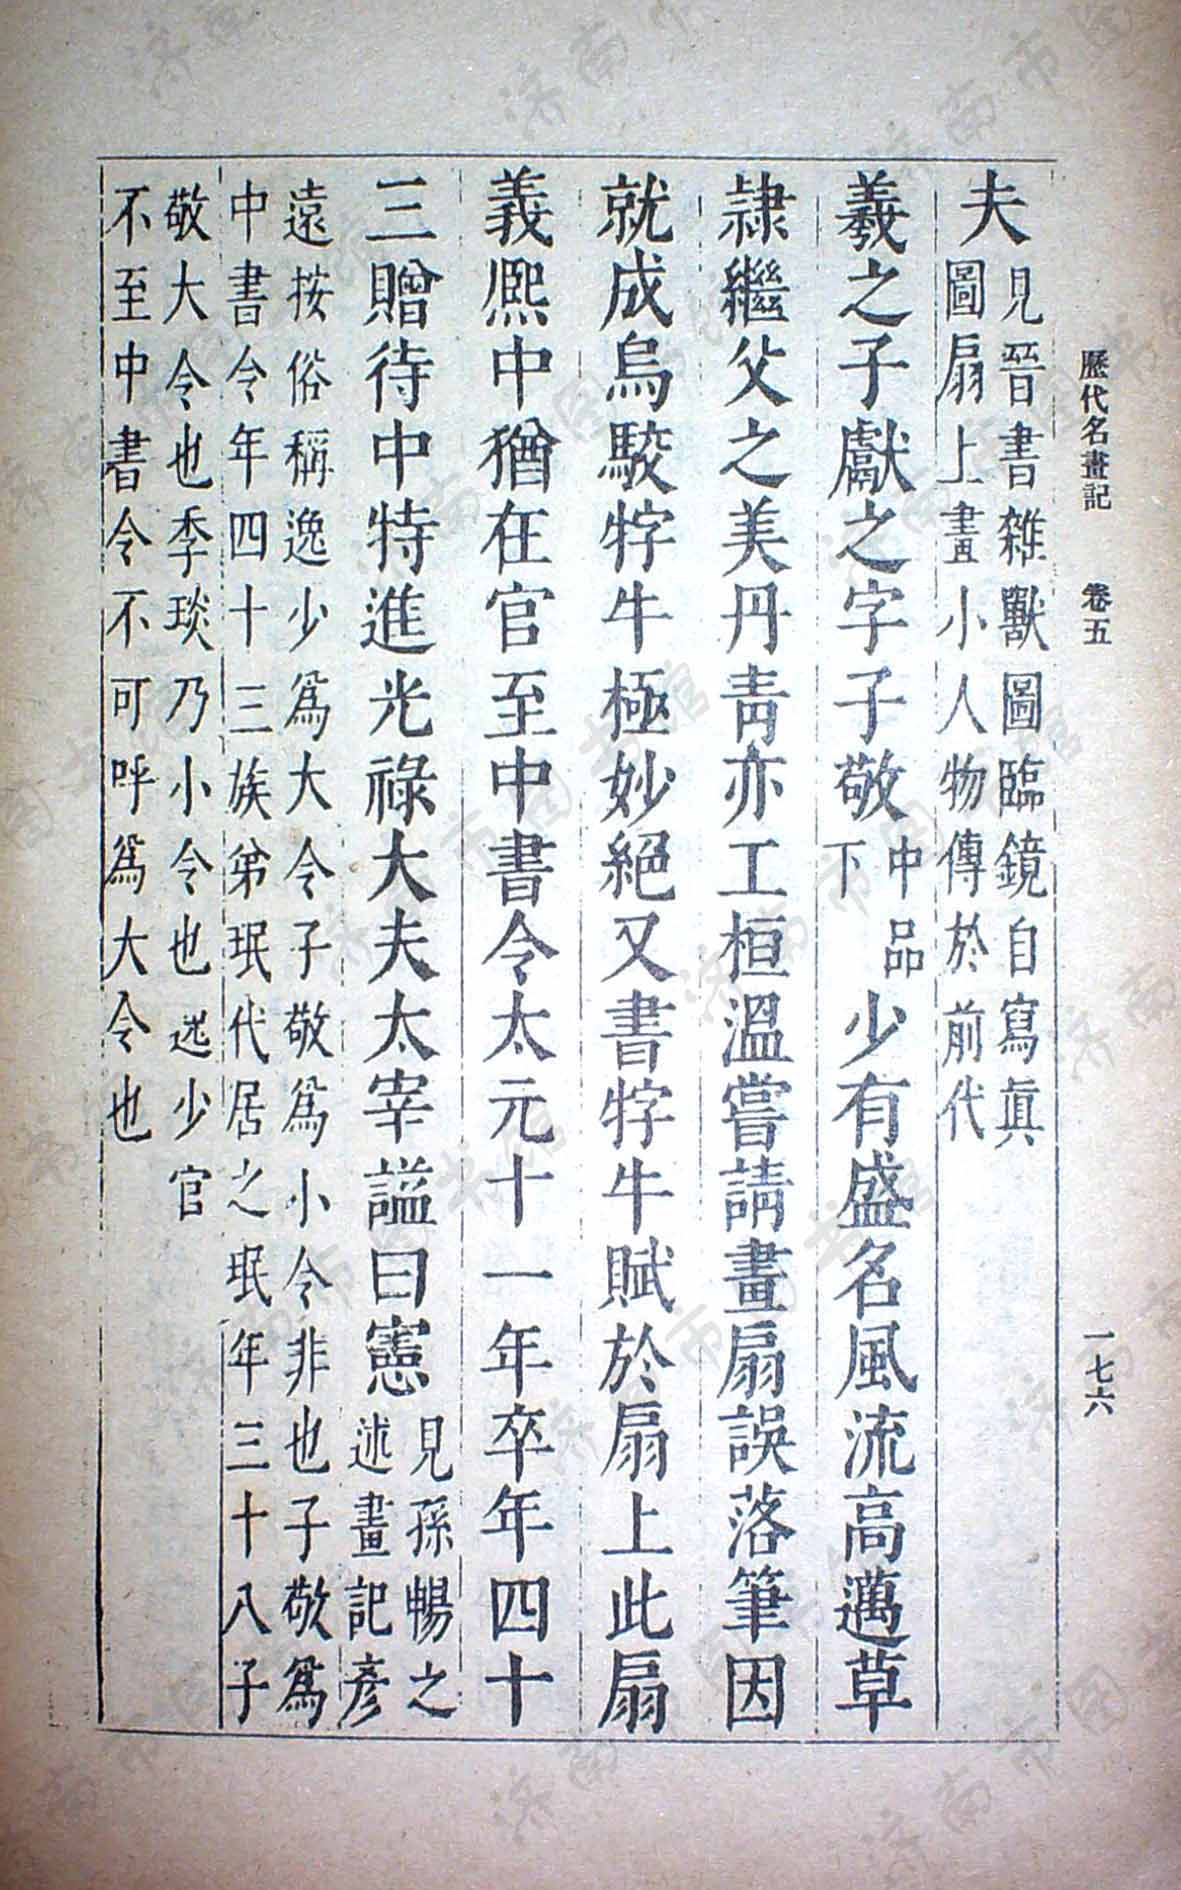 歷代名畫記　卷五　一七六
夫見晉書雜獸圖臨鏡自寫眞
圖扇上畫小人物傳於前代
羲之子獻之字子敬中品
下少有盛名風流高邁草
隷繼父之美丹靑亦工桓溫嘗請畫扇誤落筆因
就成烏駮牸牛極妙絕又書牸牛賦於扇上此扇
義熈中猶在官至中書令太元十一年卒年四十
三贈待中特進光祿大夫太宰謚曰憲見孫暢之
述畫記彥
遠按俗稱逸少爲大令子敬爲小令非也子敬爲
中書令年四十三族弟珉代居之珉年三十八子
敬大令也季琰乃小令也逸少官
不至中書令不可呼爲大令也
济南市图书馆